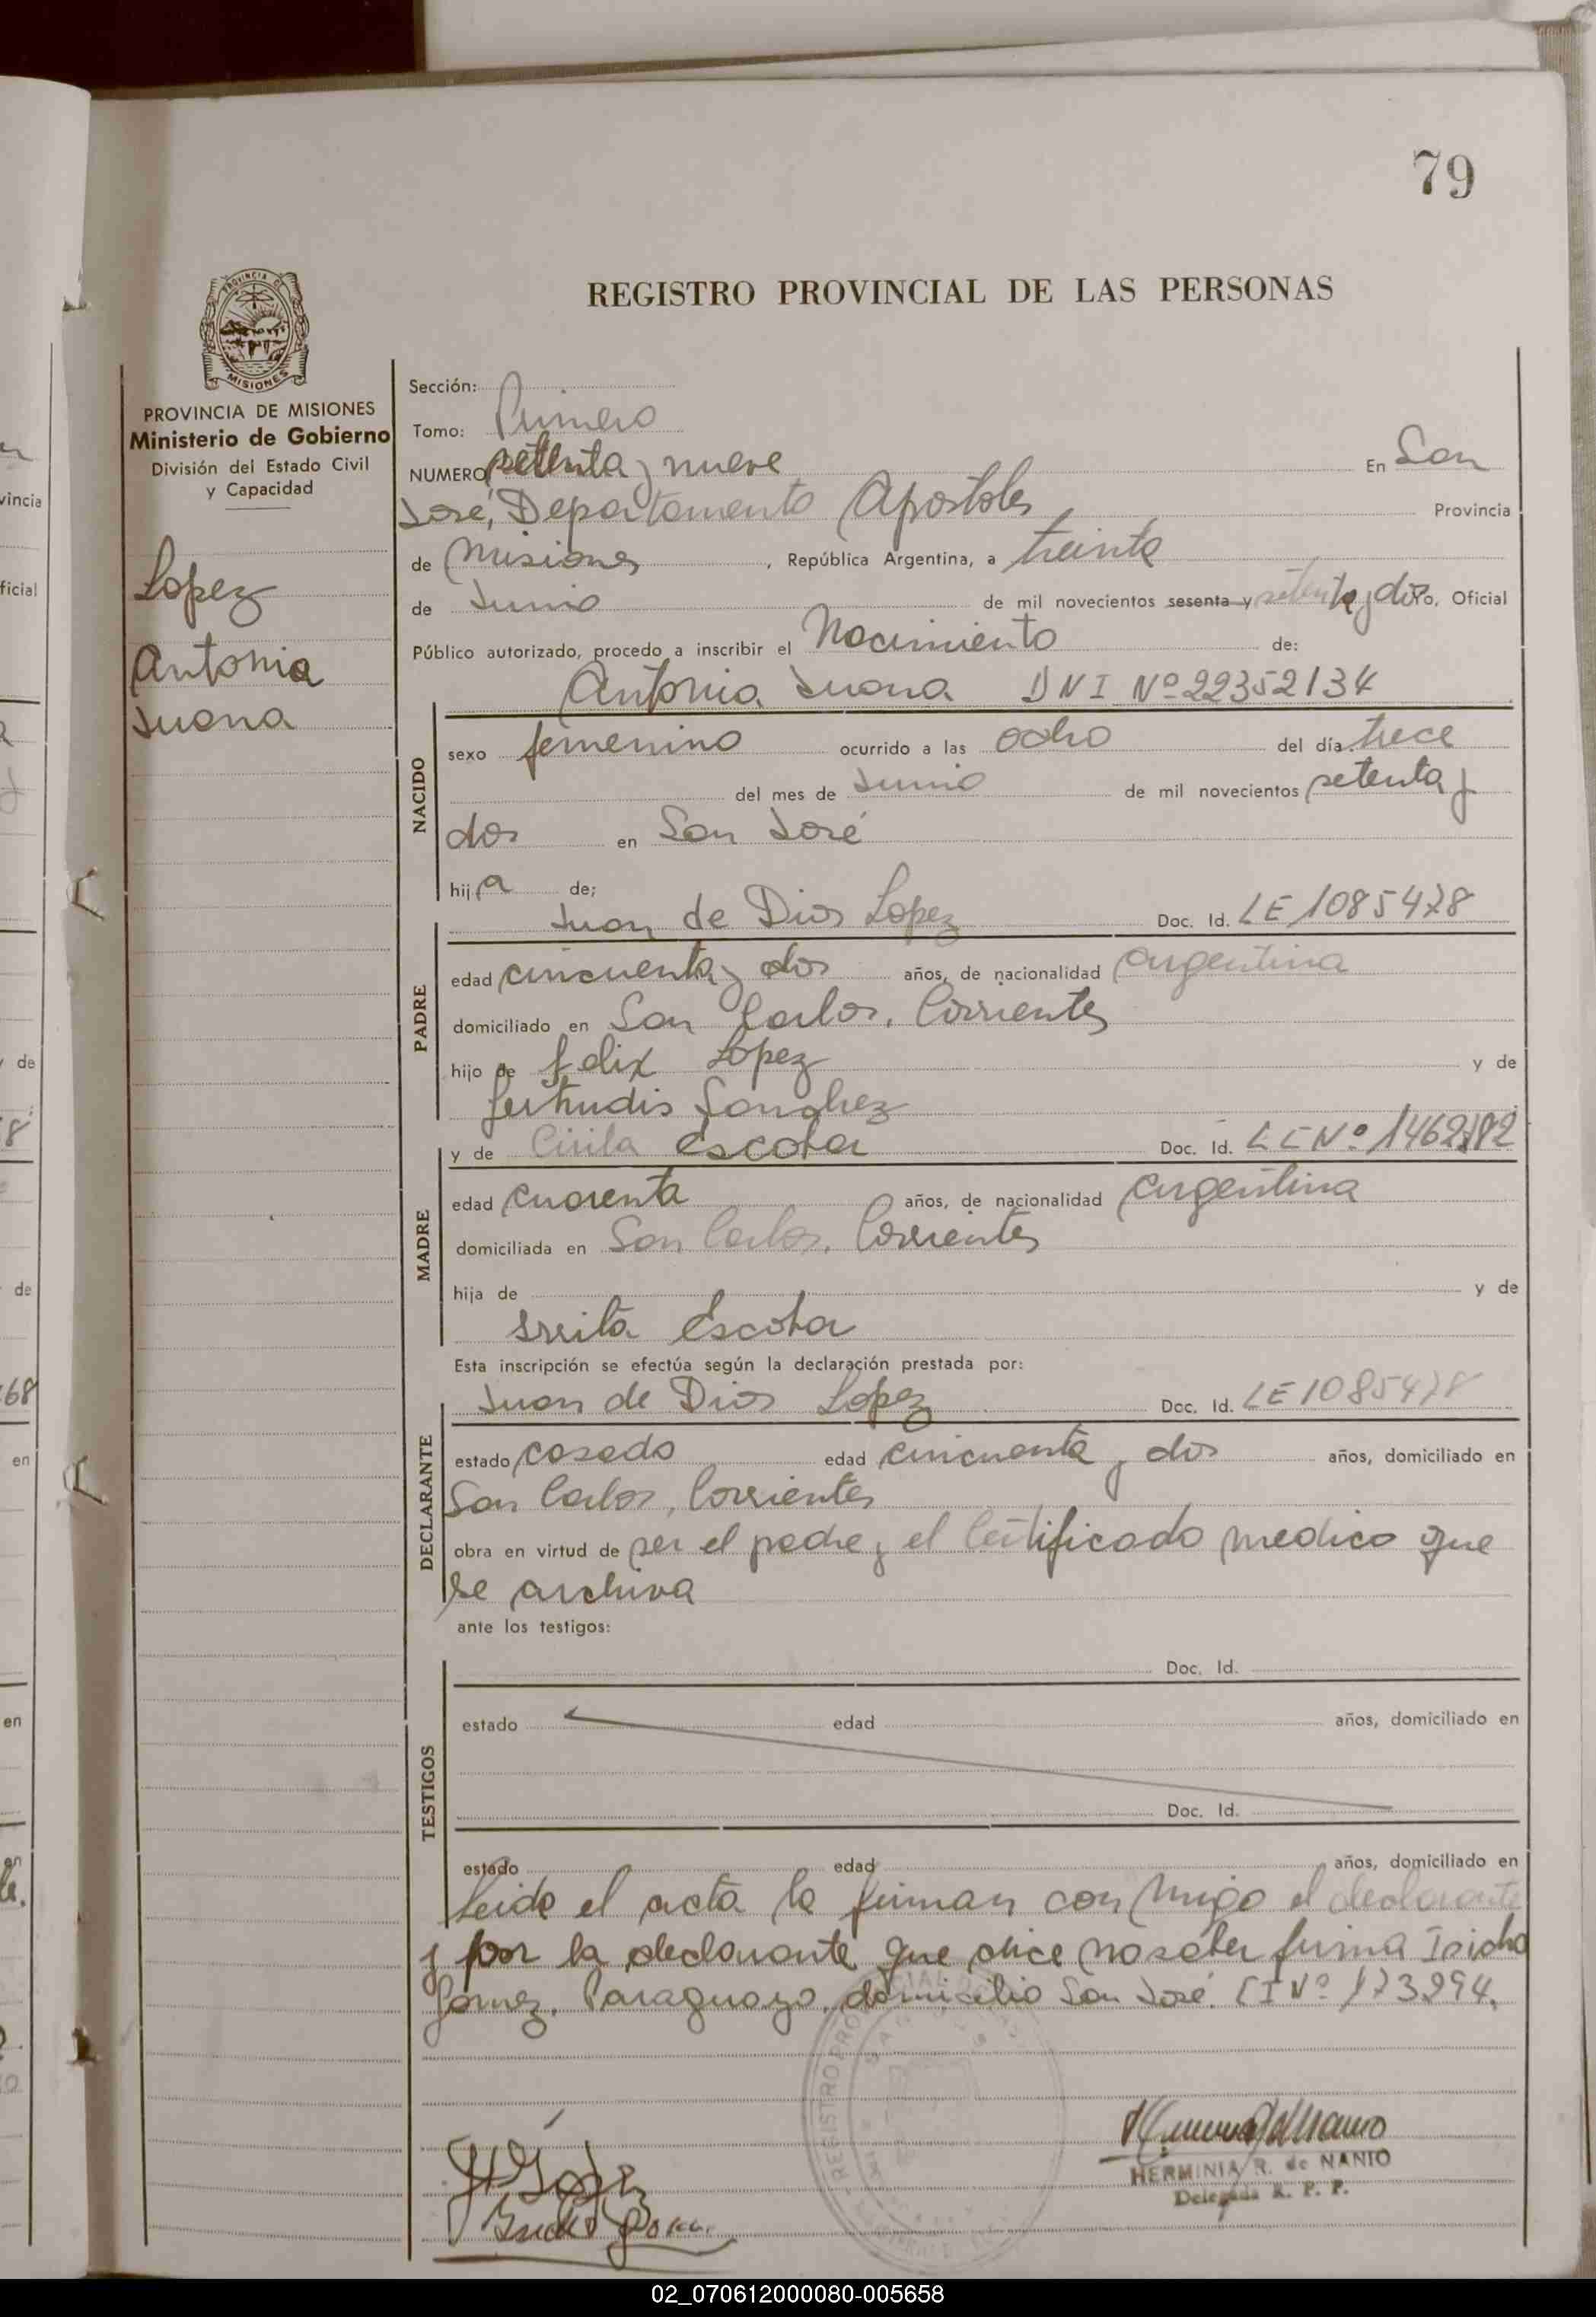 79
REGISTRO PROVINCIAL DE LAS PERSONAS
PROVINCIA DE
MISIONES
PROVINCIA DE MISIONES
Ministerio de Gobierno
División del Estado Civil
y Capacidad
Lopez
Antonia
Juana
Sección:
Tomo: Primero
NUMERO setenta y nueve En San
José, Departamento Apostoles Provincia
de Misiones, República Argentina, a treinta
de Junio de mil novecientos sesenta y setenta y dos, Oficial
Público autorizado, procedo a inscribir el Nacimiento de:
Antonia Juana DNI Nº 22352134
NACIDO
sexo femenino ocurrido a las ocho del día trece
del mes de Junio de mil novecientos setenta y
dos en San José
hija de;
Juan de Dios Lopez Doc. Id. LE 1085478
PADRE
edad cincuenta y dos años, de nacionalidad argentina
domiciliado en San Carlos, Corrientes
hijo de Felix Lopez y de
Gertrudis Sanchez
y de Cirila Escobar Doc. Id. LC Nº
MADRE
edad cuarenta años, de nacionalidad argentina
domiciliada en San Carlos, Corrientes
hija de y de
Escobar
Esta inscripción se efectúa según la declaración prestada por:
Juan de Dios Lopez Doc. Id. LE 1085478
DECLARANTE
estado casado edad cincuenta y dos años, domiciliado en
San Carlos, Corrientes
obra en virtud de ser el padre y el Certificado medico que
se archiva
ante los testigos:
TESTIGOS
Doc. Id.
estado edad años, domiciliado en
Doc. Id.
estado edad años, domiciliado en
Leida el acta la firman con migo el declarante
y por la declarante que dice no saber firma Isicho
Gomez, Paraguayo, domicilio San José. CI Nº 173294.
REGISTRO PROVINCIAL
HERMINIA R. de NANIO
Delegada R. P. P.
02_070612000080-005658